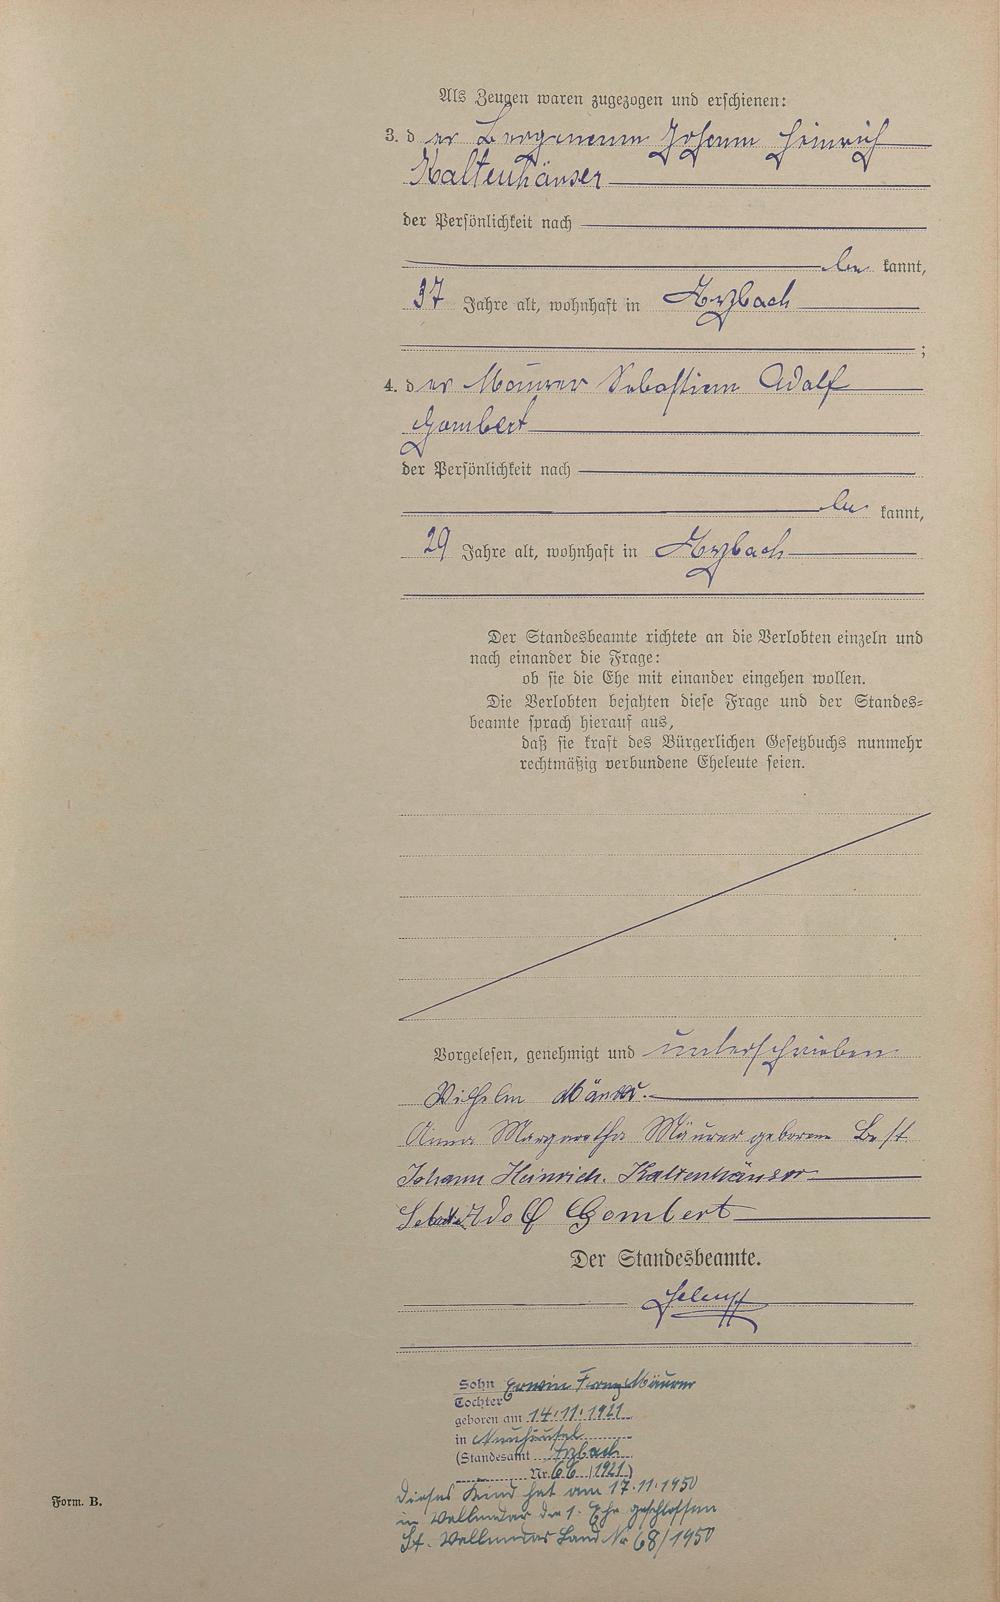 Als Zeugen waren zugezogen und erschienen:
3. d er Bergmann Johann Heinrich
Kaltenhäuser
der Persönlichkeit nach
be kannt,
37 Jahre alt, wohnhaft in Arzbach
;
4. d er Maurer Sebastian Adolf
Gombert
der Persönlichkeit nach
be kannt,
29 Jahre alt, wohnhaft in Arzbach
Der Standesbeamte richtete an die Verlobten einzeln und
nach einander die Frage:
ob sie die Ehe mit einander eingehen wollen.
Die Verlobten bejahten diese Frage und der Standes-
beamte sprach hierauf aus,
daß sie kraft des Bürgerlichen Gesetzbuchs nunmehr
rechtmäßig verbundene Eheleute seien.
Vorgelesen, genehmigt und unterschrieben
Wilhelm Mäurer.
Anna Margaretha Mäurer geborene Best
Johann Heinrich. Kaltenhäuser
Adolf Gombert
Der Standesbeamte.
Sohn Erwin Franz Mäurer
Tochter
geboren am 14.11.1921
in Neuhäusel
(Standesamt Arzbach
Nr. 66/1921)
Dieses Kind hat am 17.11.1950
in Vallendar die 1. Ehe geschlossen
St. Vallendar Land Nr 68/1950
Form. B.